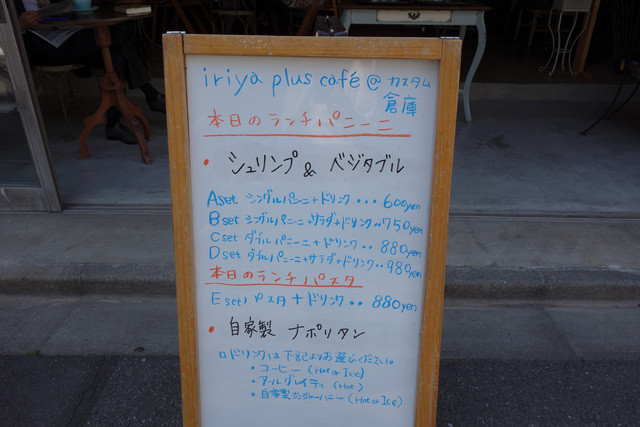 iriya plus café @ カスタム
倉庫
本日のランチパニーニ
• シュリンプ & ベジタブル
Aset シングルパニーニ+ドリンク・・・600yen
Bset シングルパニーニ+サラダ+ドリンク・・750yen
Cset ダブルパニーニ+ドリンク・・880yen
Dset ダブルパニーニ+サラダ+ドリンク・・980yen
本日のランチパスタ
Eset パスタ+ドリンク・・880yen
• 自家製 ナポリタン
□ドリンクは下記よりお選びください。
・コーヒー (Hot or Ice)
・アールグレイティ (Hot)
・自家製ジンジャーハニー (Hot or Ice)